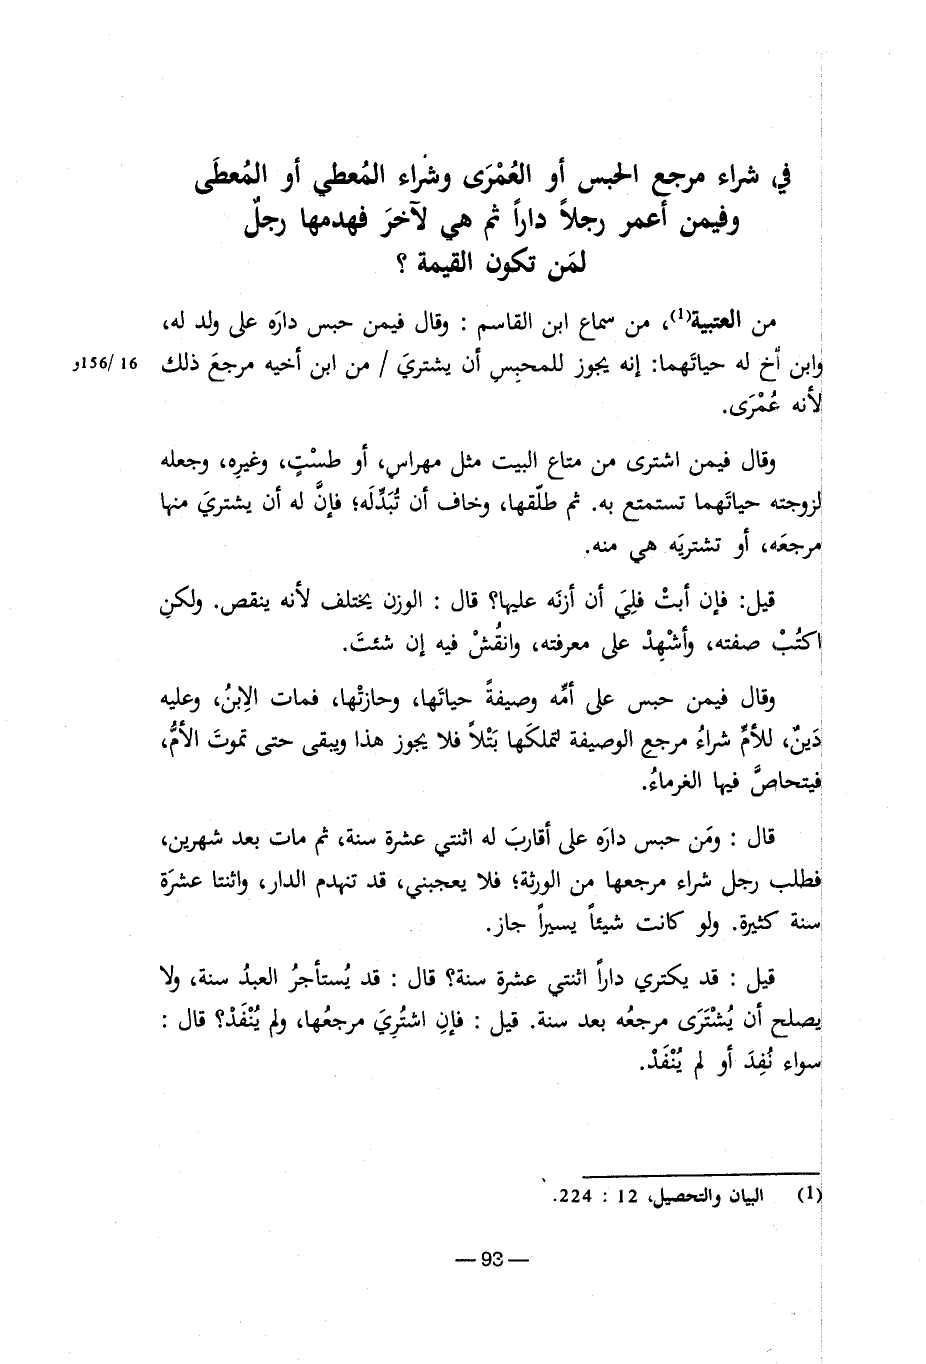 في شراء مرجع الحبس أو العُمْرَى وشراء المُعطي أو المُعطَى
وفيمن أعمر رجلاً داراً ثم هي لآخرَ فهدمها رجلٌ
لمَن تكون القيمة ؟
من العتبية(1)، من سماع ابن القاسم : وقال فيمن حبس دارَه على ولد له،
وابن أخ له حياتَهما: إنه يجوز للمحبِس أن يشتريَ / من ابن أخيه مرجعَ ذلك 16 /156و
لأنه عُمْرَى.
وقال فيمن اشترى من متاع البيت مثل مهراس، أو طسْتٍ، وغيرِه، وجعله
لزوجته حياتَهما تستمتع به. ثم طلّقها، وخاف أن تُبَدِّلَه؛ فإنَّ له أن يشتريَ منها
مرجعَه، أو تشتريَه هي منه.
قيل: فإن أبتْ فلِيَ أن أزنَه عليها؟ قال : الوزن يختلف لأنه ينقص. ولكنِ
اكتُبْ صفته، وأشْهِدْ على معرفته، وانقُشْ فيه إن شئتَ.
وقال فيمن حبس على أمِّه وصيفةً حياتَها، وحازتْها، فمات الاِبنُ، وعليه
دَينٌ، للأمِّ شراءُ مرجعِ الوصيفة لتملكَها بَتْلاً فلا يجوز هذا ويبقى حتى تموتَ الأمُّ،
فيتحاصَّ فيها الغرماءُ.
قال : ومَن حبس دارَه على أقاربَ له اثنتي عشرة سنة، ثم مات بعد شهرين،
فطلب رجل شراء مرجعها من الورثة؛ فلا يعجبني، قد تنهدم الدار، واثنتا عشرَة
سنة كثيرة. ولو كانت شيئاً يسيراً جاز.
قيل : قد يكتري داراً اثنتي عشرة سنة؟ قال : قد يُستأجرُ العبدُ سنة، ولا
يصلح أن يُشْتَرَى مرجعُه بعد سنة. قيل : فإنِ اشتُرِيَ مرجعُها، ولم يُنْفَدْ؟ قال :
سواء نُفِدَ أو لم يُنْفَدْ.
(1) البيان والتحصيل، 12 : 224.
— 93 —